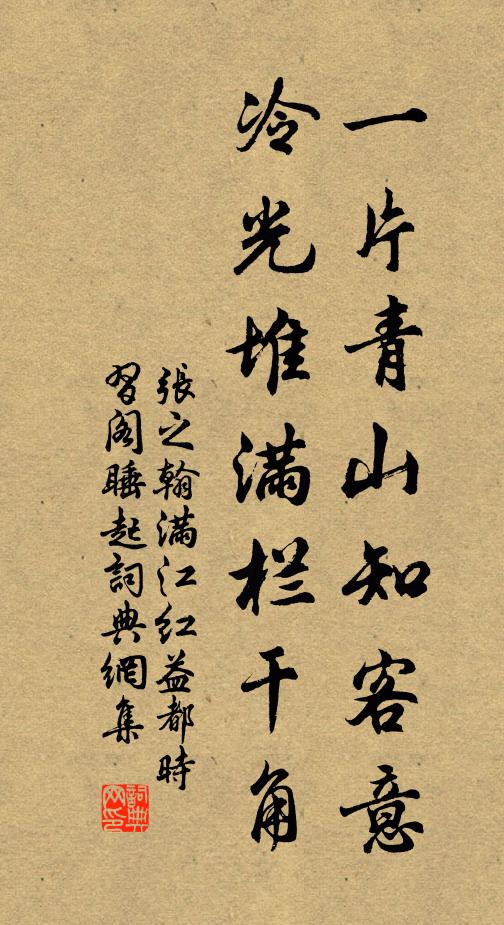 一片青山知客意
冷光堆满栏干角
張之翰满江红益都時
習阁睡起詞典網集
詞典網印